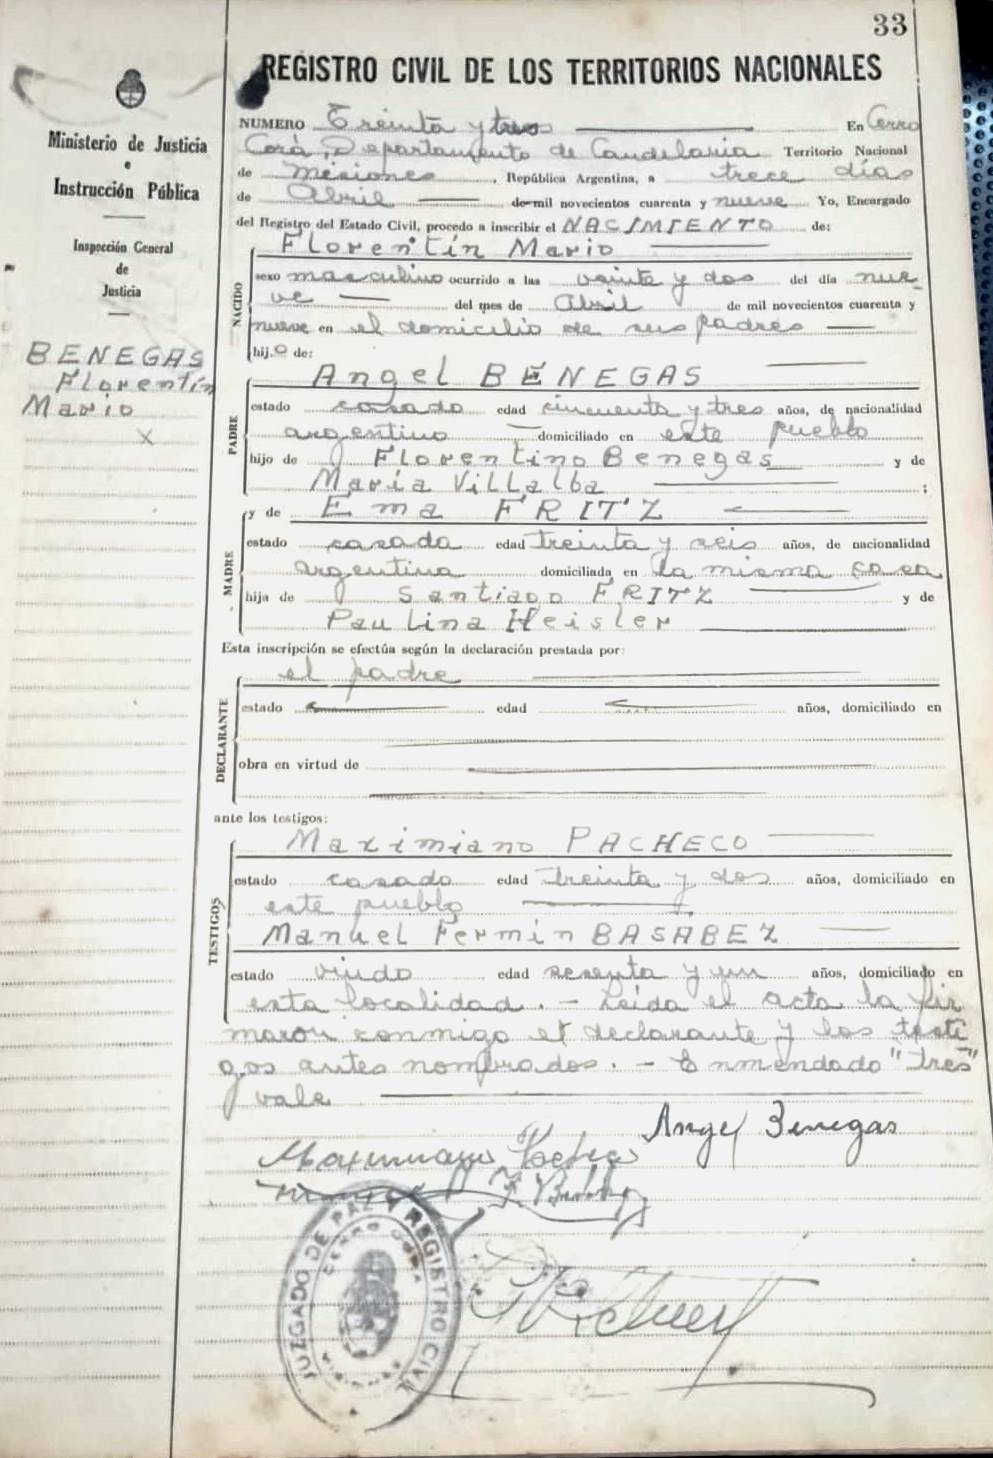 33
REGISTRO CIVIL DE LOS TERRITORIOS NACIONALES
Ministerio de Justicia
e
Instrucción Pública
Inspección General
de
Justicia
BENEGAS
Florentín
Mario
X
NUMERO Treinta y tres En Cerro
Corá, Departamento de Candelaria Territorio Nacional
de Misiones, República Argentina, a trece días
de Abril de mil novecientos cuarenta y nueve Yo, Encargado
del Registro del Estado Civil, procedo a inscribir el NACIMIENTO de:
NACIDO
Florentín Mario
sexo masculino ocurrido a las veinte y dos del día nue-
ve del mes de Abril de mil novecientos cuarenta y
nueve en el domicilio de sus padres
hijo de:
PADRE
Angel BENEGAS
estado casado edad cincuenta y tres años, de nacionalidad
argentino domiciliado en este pueblo
hijo de Florentino Benegas y de
María Villalba ;
MADRE
y de Ema FRITZ
estado casada edad treinta y seis años, de nacionalidad
argentina domiciliada en la misma casa
hija de Santiago FRITZ y de
Paulina Heisler
Esta inscripción se efectúa según la declaración prestada por:
DECLARANTE
el padre
estado edad años, domiciliado en
obra en virtud de
ante los testigos:
TESTIGOS
Maximiano PACHECO
estado casado edad treinta y dos años, domiciliado en
este pueblo
Manuel Fermin BASABEZ
estado viudo edad sesenta y un años, domiciliado en
esta localidad. - Leída el acta la fir
maron conmigo el declarante y los testi
gos antes nombrados. - Enmendado "tres"
vale
Angel Benegas
Maximiano Pacheco
JUZGADO DE PAZ Y REGISTRO CIVIL
CERRO CORA